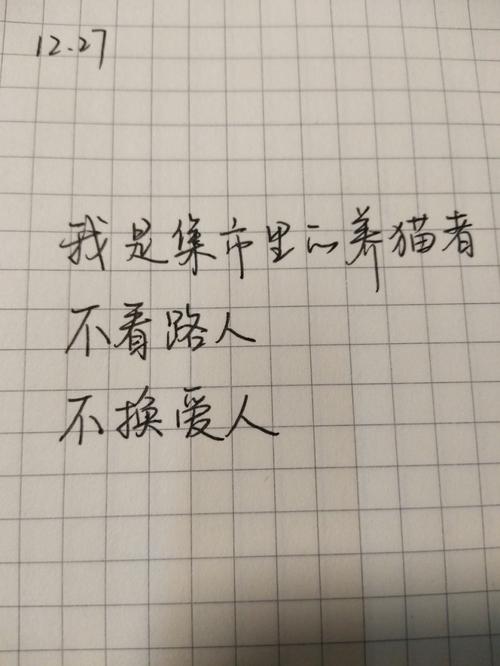 12.27
我是集市里的养猫者
不看路人
不换爱人